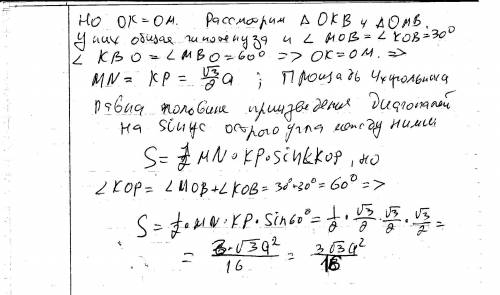 Но OK=OM. Рассмотрим △ OKB и △ OMB.
У них общая гипотенуза и ∠ MOB=∠ KOB=30°
∠ KBO=∠ MBO=60° => OK=OM. =>
MN = KP = √3/2 a ; Площадь 4хугольника
равна половине произведения диагоналей
на sinус острого угла между ними
S= 1/2 MN·KP·sin∠KOP, но
∠KOP= ∠MOB+∠KOB= 30°+30°=60° =>
S= 1/2·MN·KP·Sin60°= 1/2 · √3/2 · √3/2 · √3/2 =
= 3·√3a²/16 = 3√3a²/16